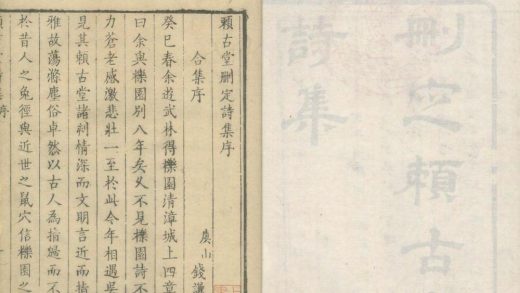 刪定賴古
詩集
賴古堂刪定詩集序
合集序
虞山 錢謙
癸巳春余遊武林得櫟園清漳城上四章
曰余與櫟園別八年矣又不見櫟園詩不
力蒼老感激悲壯一至於此今年相遇吳
見其賴古堂諸刻情深而文明言近而指
雅故蕩滌塵俗卓然以古人為指歸而不
於昔人之兔徑與近世之鼠穴信櫟園之